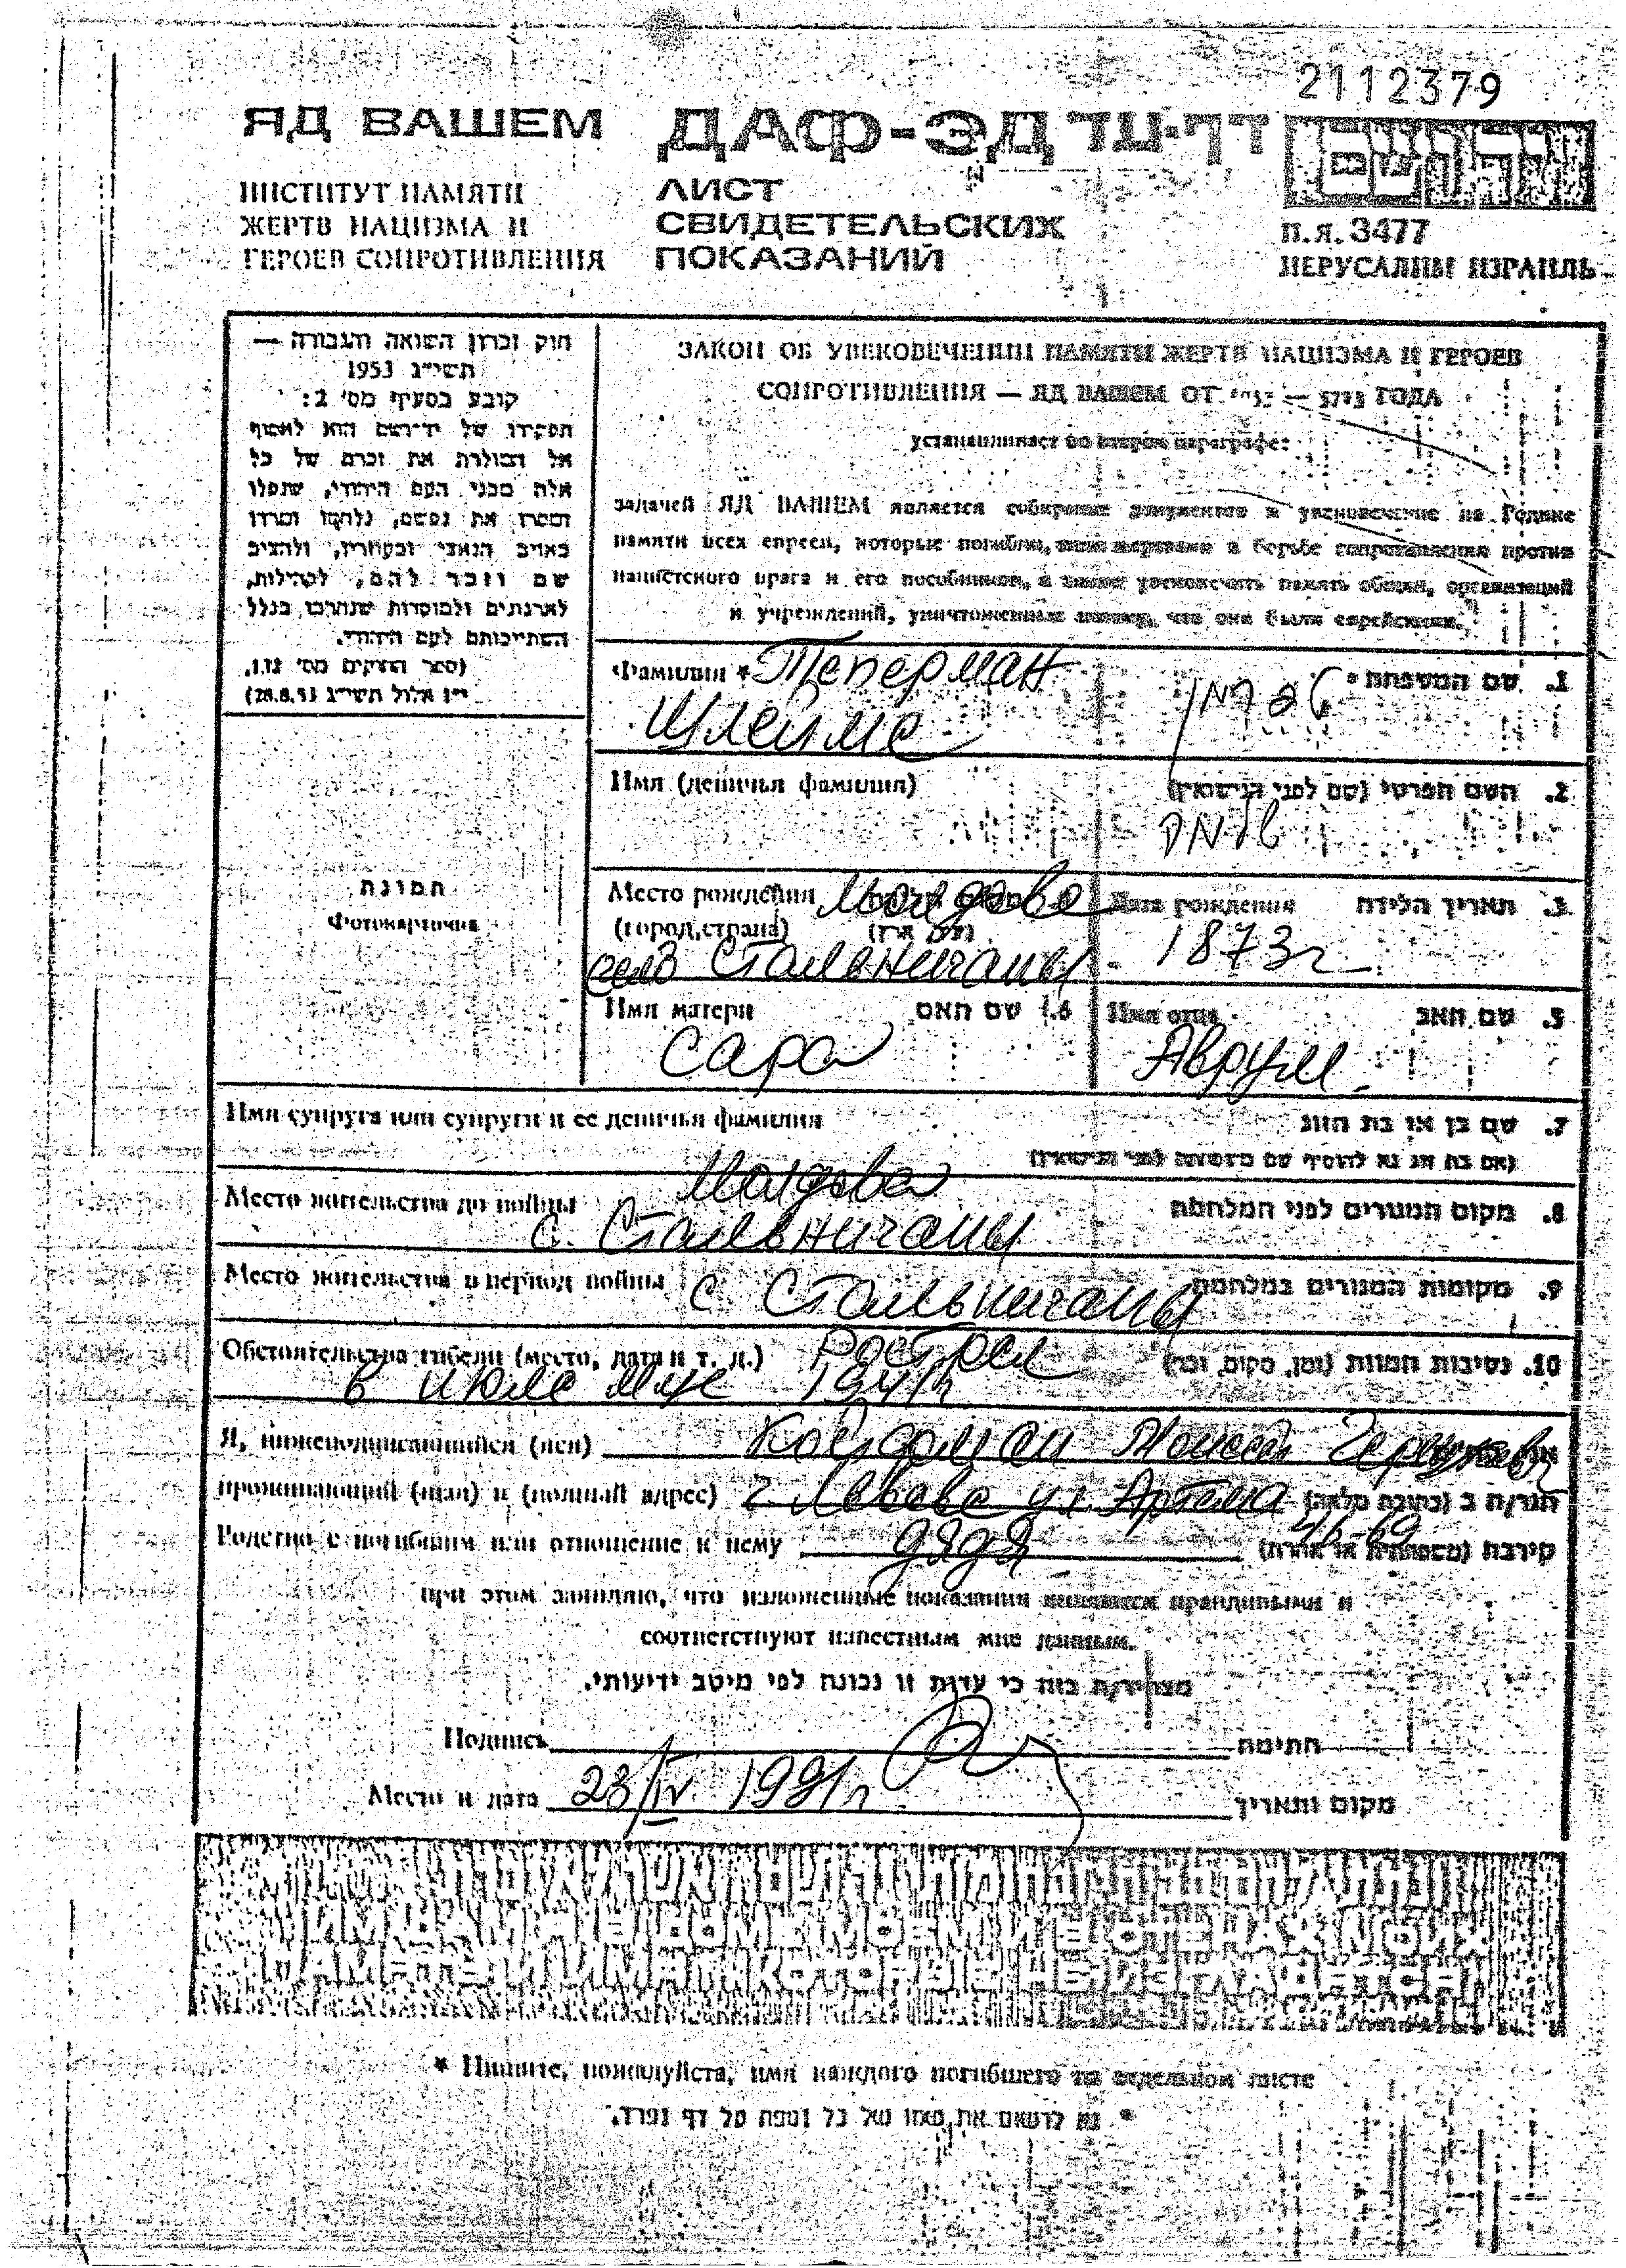 2112379
ЯД ВАШЕМ ДАФ-ЭД דף-עד
ИНСТИТУТ ПАМЯТИ
ЖЕРТВ НАЦИЗМА И
ГЕРОЕВ СОПРОТИВЛЕНИЯ
ЛИСТ
СВИДЕТЕЛЬСКИХ
ПОКАЗАНИЙ
П.Я. 3477
ИЕРУСАЛИМ ИЗРАИЛЬ
חוק זכרון השואה והגבורה —
תשי״ג 1953
קובע בסעיף מס׳ 2:
תפקידו של יד-ושם הוא לאסוף
אל המולדת את זכרם של כל
אלה מבני העם היהודי, שנפלו
ומסרו את נפשם, נלחמו ומרדו
באויב הנאצי ובעוזריו, ולהציב
שם וזכר להם, לקהילות,
לארגונים ולמוסדות שנחרבו בגלל
השתייכותם לעם היהודי.
(ספר החוקים מס׳ 132,
י״ז אלול תשי״ג 28.8.53)
תמונה
Фотокарточка
ЗАКОН ОБ УВЕКОВЕЧЕНИИ ПАМЯТИ ЖЕРТВ НАЦИЗМА И ГЕРОЕВ
СОПРОТИВЛЕНИЯ — ЯД ВАШЕМ ОТ 1953 — 5713 ГОДА
устанавливает во втором параграфе:
задачей ЯД ВАШЕМ является собирание документов и увековечение на Родине
памяти всех евреев, которые погибли, пали жертвами в борьбе сопротивления против
нацистского врага и его пособников, а также увековечить память общин, организаций
и учреждений, уничтоженных потому, что они были еврейскими.
Фамилия * Теперман 1. שם המשפחה *
Шлейме
Имя (девичья фамилия) 2. השם הפרטי (שם לפני הנישואין)
Место рождения Молдова Дата рождения 3. תאריך הלידה
(город, страна)
село Стальничаны 1873г
Имя матери 6. שם האם Имя отца 5. שם האב
Сара Аврум
Имя супруга или супруги и ее девичья фамилия 7. שם בן או בת הזוג
Молдова
Место жительства до войны 8. מקום המגורים לפני המלחמה
с. Стальничаны
Место жительства в период войны с Стальничаны 9. מקומות המגורים במלחמה
Обстоятельства гибели (место, дата и т. д.) Растрел 10. נסיבות המוות (זמן, מקום, וכו׳)
в июле м-це 1941г
Я, нижеподписавшийся (аяся) Койфман Моисей
проживающий (щая) в (полный адрес) г Львове ул Артема הגר/ה ב (כתובת מלאה)
46-69
Родство с погибшим или отношение к нему дядя קירבה (משפחתית או אחרת)
при этом заявляю, что изложенные показания являются правдивыми и
соответствуют известным мне данным.
מצהיר/ה בזה כי עדות זו נכונה לפי מיטב ידיעותי.
Подпись חתימה
Место и дата 23/IV 1991г מקום ותאריך
И ИМ ДАМ Я В ДОМЕ МОЕМ И В СТЕНАХ МОИХ
ПАМЯТЬ И ИМЯ КОТОРЫЕ НЕ ИЗГЛАДЯТСЯ
* Пишите, пожалуйста, имя каждого погибшего на отдельном листе
* נא לרשום את שמו של כל נספה על דף נפרד.